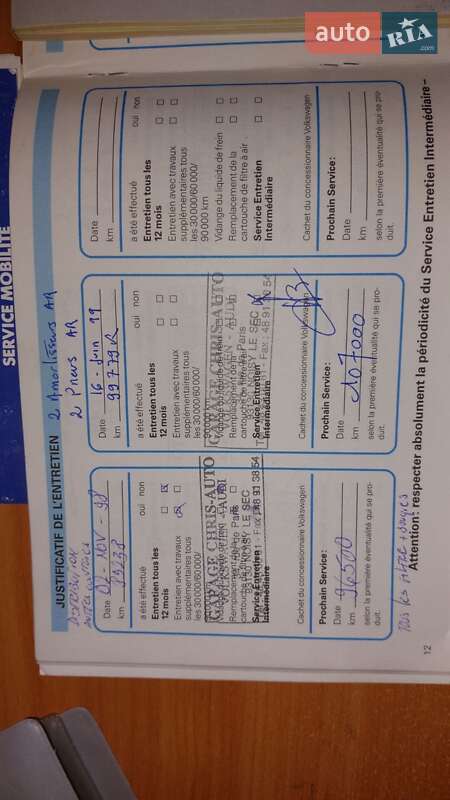 auto RIA .com
SERVICE MOBILITE
JUSTIFICATIF DE L'ENTRETIEN 2 Amortisseurs AR
2 Pneus AR
Date 02 - NOV - 98
km
a été effectué oui non
Entretien tous les
12 mois
Entretien avec travaux
supplémentaires tous
les 30 000/60 000/
90 000 km
GARAGE CHRIS-AUTO
VOLKSWAGEN - AUDI
NOISY LE SEC
48 91 38 54
Service Entretien
Intermédiaire
Cachet du concessionnaire Volkswagen
Prochain Service:
Date
km 96500
selon la première éventualité qui se pro-
duit.
Date 16 - Juin 99
km 99779
a été effectué oui non
Entretien tous les
12 mois
Entretien avec travaux
supplémentaires tous
les 30 000/60 000/
90 000 km
GARAGE CHRIS-AUTO
VOLKSWAGEN - AUDI
Remplacement de la
cartouche de filtre à air
NOISY LE SEC
Fax: 48 91 38 54
Service Entretien
Intermédiaire
Cachet du concessionnaire Volkswagen
Prochain Service:
Date
km 107000
selon la première éventualité qui se pro-
duit.
Date
km
a été effectué oui non
Entretien tous les
12 mois
Entretien avec travaux
supplémentaires tous
les 30 000/60 000/
90 000 km
Vidange du liquide de frein
Remplacement de la
cartouche de filtre à air
Service Entretien
Intermédiaire
Cachet du concessionnaire Volkswagen
Prochain Service:
Date
km
selon la première éventualité qui se pro-
duit.
Attention: respecter absolument la périodicité du Service Entretien Intermédiaire –
12